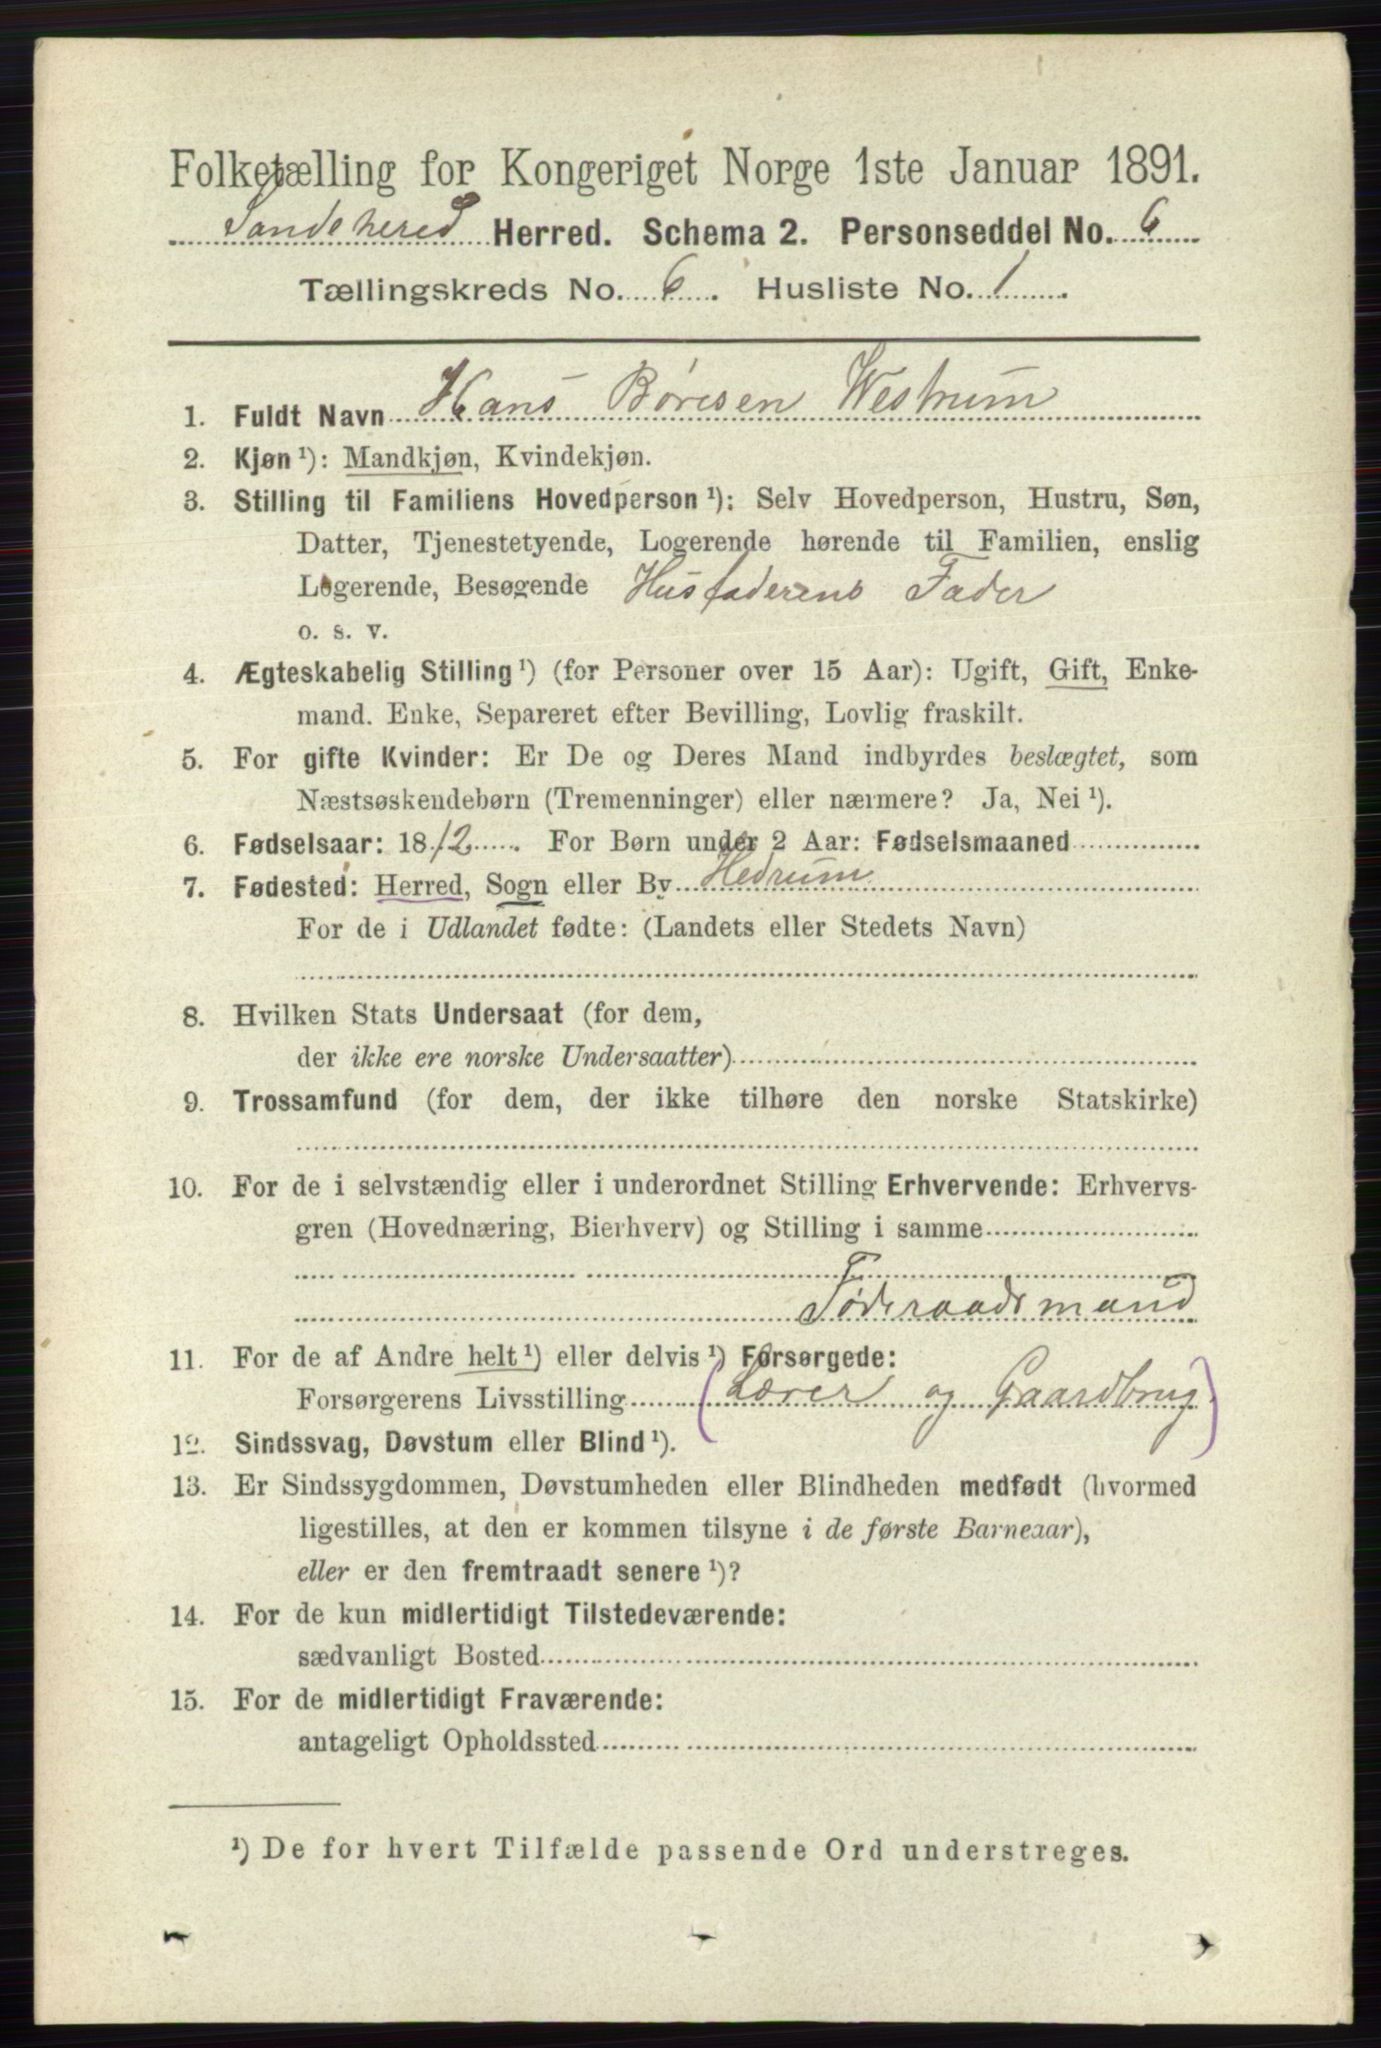 Folketælling for Kongeriget Norge 1ste Januar 1891.
Sandeherred Herred. Schema 2. Personseddel No. 6
Tællingskreds No. 6. Husliste No. 1.
1. Fuldt Navn Hans Børesen Westrum
2. Kjøn ¹): Mandkjøn, Kvindekjøn.
3. Stilling til Familiens Hovedperson ¹): Selv Hovedperson, Hustru, Søn,
Datter, Tjenestetyende, Logerende hørende til Familien, enslig
Logerende, Besøgende Husfaderens Fader
o. s. v.
4. Ægteskabelig Stilling ¹) (for Personer over 15 Aar): Ugift, Gift, Enke-
mand. Enke, Separeret efter Bevilling, Lovlig fraskilt.
5. For gifte Kvinder: Er De og Deres Mand indbyrdes beslægtet, som
Næstsøskendebørn (Tremenninger) eller nærmere? Ja, Nei ¹).
6. Fødselsaar: 1812. For Børn under 2 Aar: Fødselsmaaned
7. Fødested: Herred, Sogn eller By Hedrum
For de i Udlandet fødte: (Landets eller Stedets Navn)
8. Hvilken Stats Undersaat (for dem,
der ikke ere norske Undersaatter)
9. Trossamfund (for dem, der ikke tilhøre den norske Statskirke)
10. For de i selvstændig eller i underordnet Stilling Erhvervende: Erhvervs-
gren (Hovednæring, Bierhverv) og Stilling i samme
Føderaadsmand
11. For de af Andre helt ¹) eller delvis ¹) Forsørgede:
Forsørgerens Livsstilling (Lærer og Gaardbrug)
12. Sindssvag, Døvstum eller Blind ¹).
13. Er Sindssygdommen, Døvstumheden eller Blindheden medfødt (hvormed
ligestilles, at den er kommen tilsyne i de første Barneaar),
eller er den fremtraadt senere ¹)?
14. For de kun midlertidigt Tilstedeværende:
sædvanligt Bosted
15. For de midlertidigt Fraværende:
antageligt Opholdssted
¹) De for hvert Tilfælde passende Ord understreges.